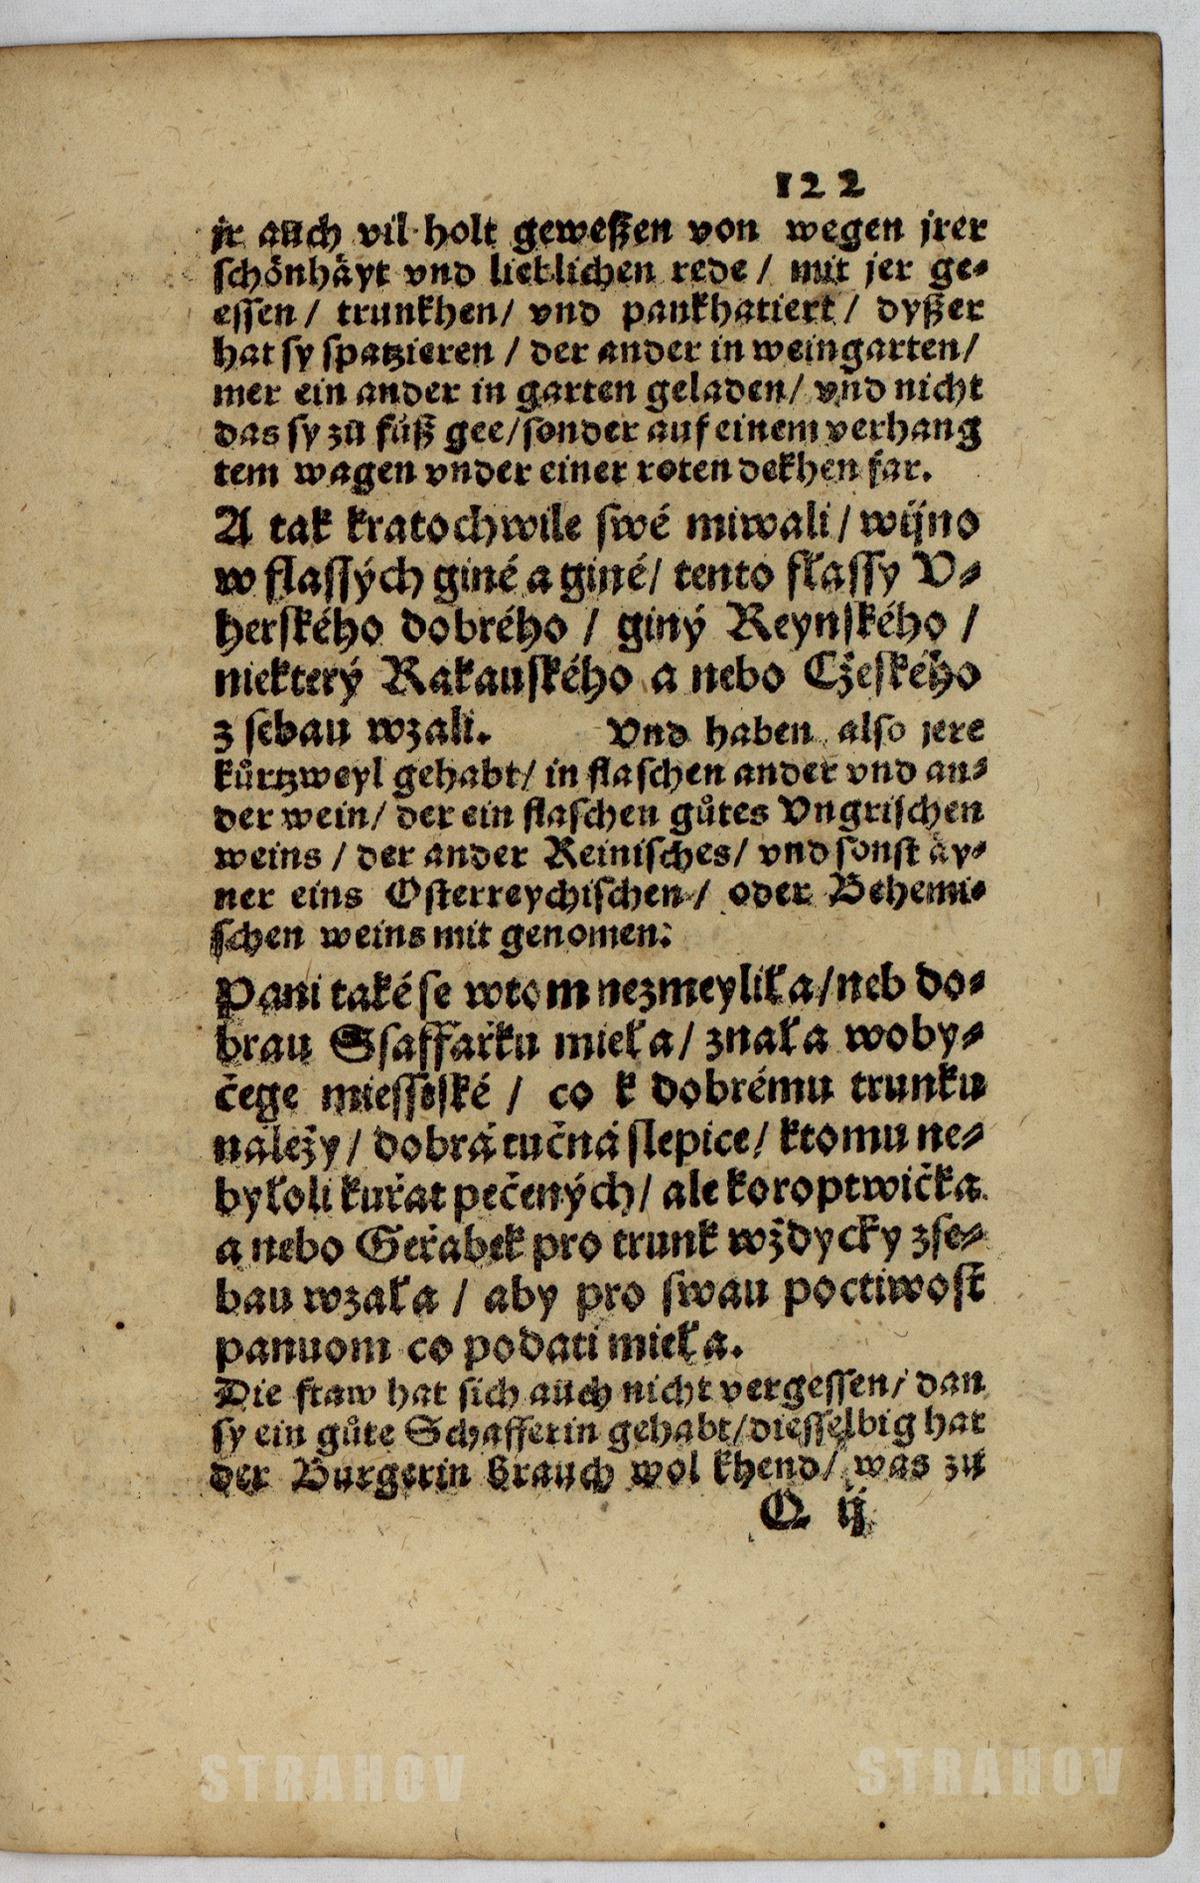 122
jr auch vil holt geweßen von wegen jrer
schönhäyt vnd lieblichen rede / mit jer ge⸗
essen / trunkhen / vnd pankhatiert / dyßer
hat sy spatzieren / der ander in weingarten /
mer ein ander in garten geladen / vnd nicht
das sy zů fůß gee / sonder auf einem verhang
tem wagen vnder einer roten dekhen far.
A tak kratochwile swé miwali / wijno
w flassých giné a giné / tento flassy V⸗
herského dobrého / giný Reynského /
niekterý Rakauského a nebo Cžeského
z sebau wzali. Vnd haben also jere
kůrtzweyl gehabt / in flaschen ander vnd an⸗
der wein / der ein flaschen gůtes Vngrischen
weins / der ander Reinisches / vnd sonst äy⸗
ner eins Osterreychischen / oder Behemi⸗
schen weins mit genomen:
Pani také se wtom nezmeylila / neb do⸗
brau Ssaffařku miela / znala woby⸗
čege miesstské / co k dobrému trunku
náležy / dobrá tučná slepice / ktomu ne⸗
byloli kuřat pečených / ale koroptwička
a nebo Geřabek pro trunk wždycky zse⸗
bau wzala / aby pro swau poctiwost
panuom co podati miela.
Die fraw hat sich auch nicht vergessen / dan
sy ein gůte Schafferin gehabt / diesselbig hat
der Burgerin brauch wol khend / was zů
Q ij
STRAHOV STRAHOV